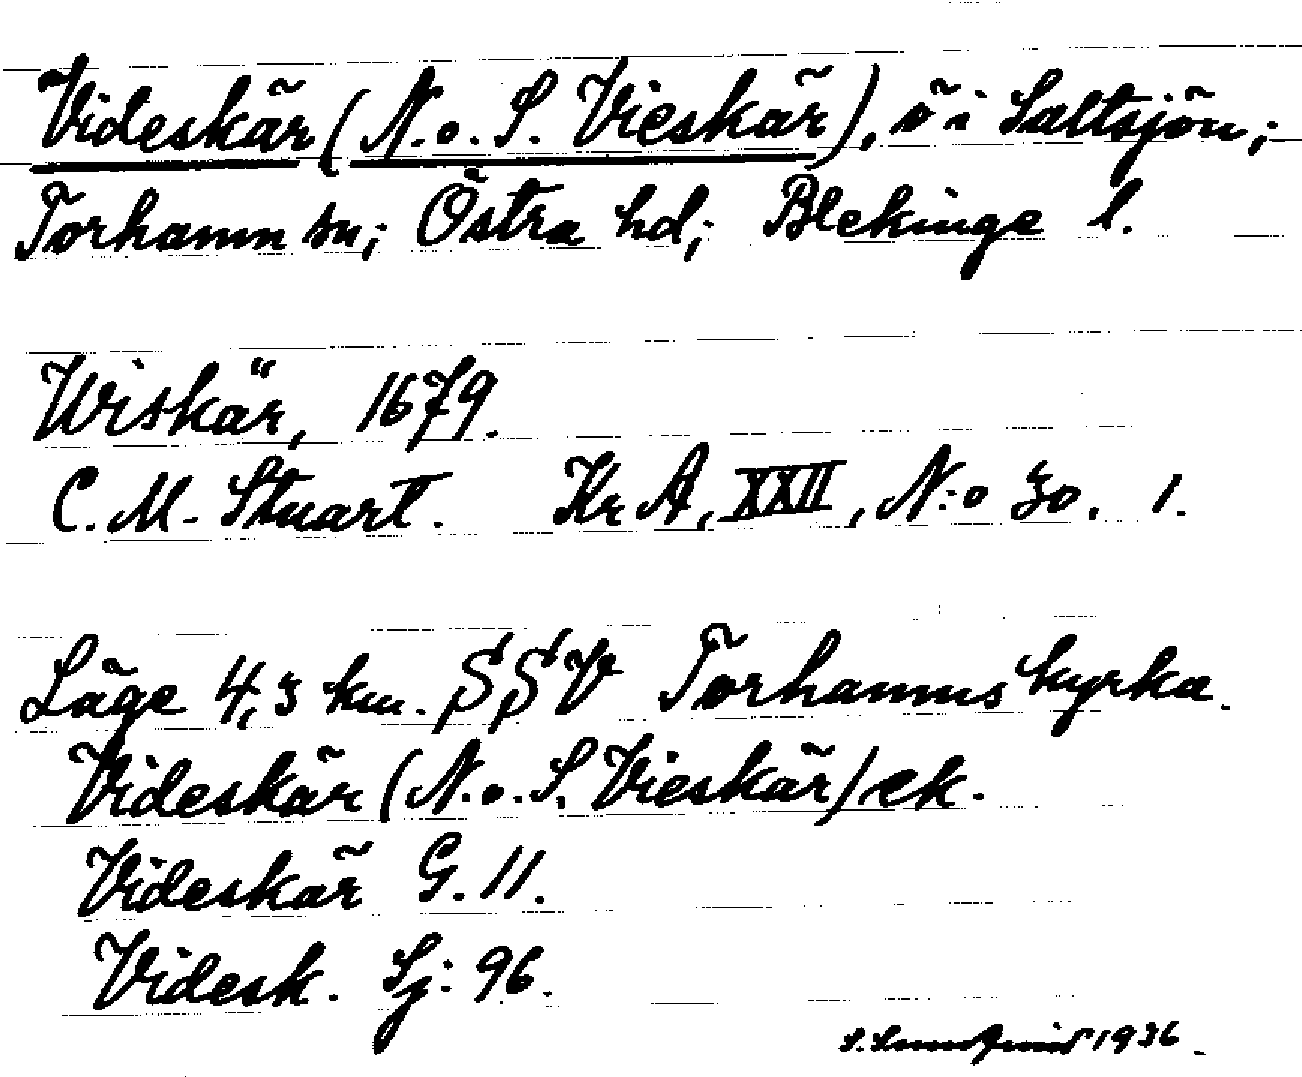 Videskär (N. o. S. Vieskär), ö i Saltsjön;
Torhamn sn; Östra hd; Blekinge l.
Wiskär, 1679.
C. M. Stuart. Kr A, XXII, N:o 30. 1.
Läge 4,3 km. SSV Torhamns kyrka.
Videskär (N. o. S. Vieskär) ek.
Videskär G. 11.
Videsk. Sj: 96.
S. Lundqvist 1936.